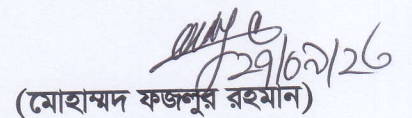 29/09/26
(মোহাম্মদ ফজলুর রহমান)